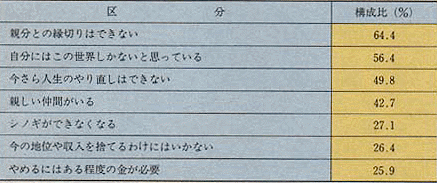 区分 構成比(%)
親分との縁切りはできない 64.4
自分にはこの世界しかないと思っている 56.4
今さら人生のやり直しはできない 49.8
親しい仲間がいる 42.7
シノギができなくなる 27.1
今の地位や収入を捨てるわけにはいかない 26.4
やめるにはある程度の金が必要 25.9